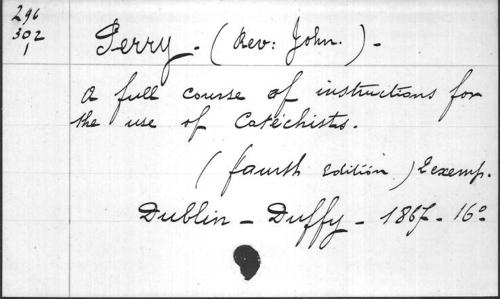 296
302
1
Perry. (Rev: John.).
A full course of instructions for
the use of Catéchists.
(fourth edition) 2 exemp.
Dublin - Duffy - 1867. 16°